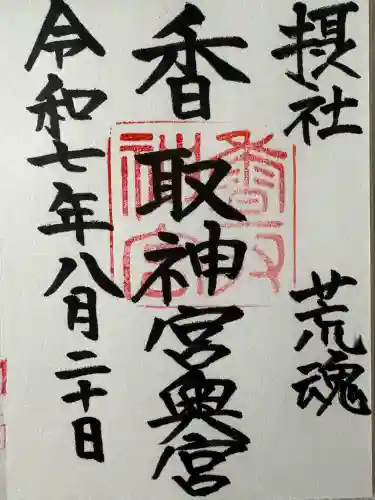 摂社 荒魂
香取神宮奥宮
令和七年八月二十日
香取神宮